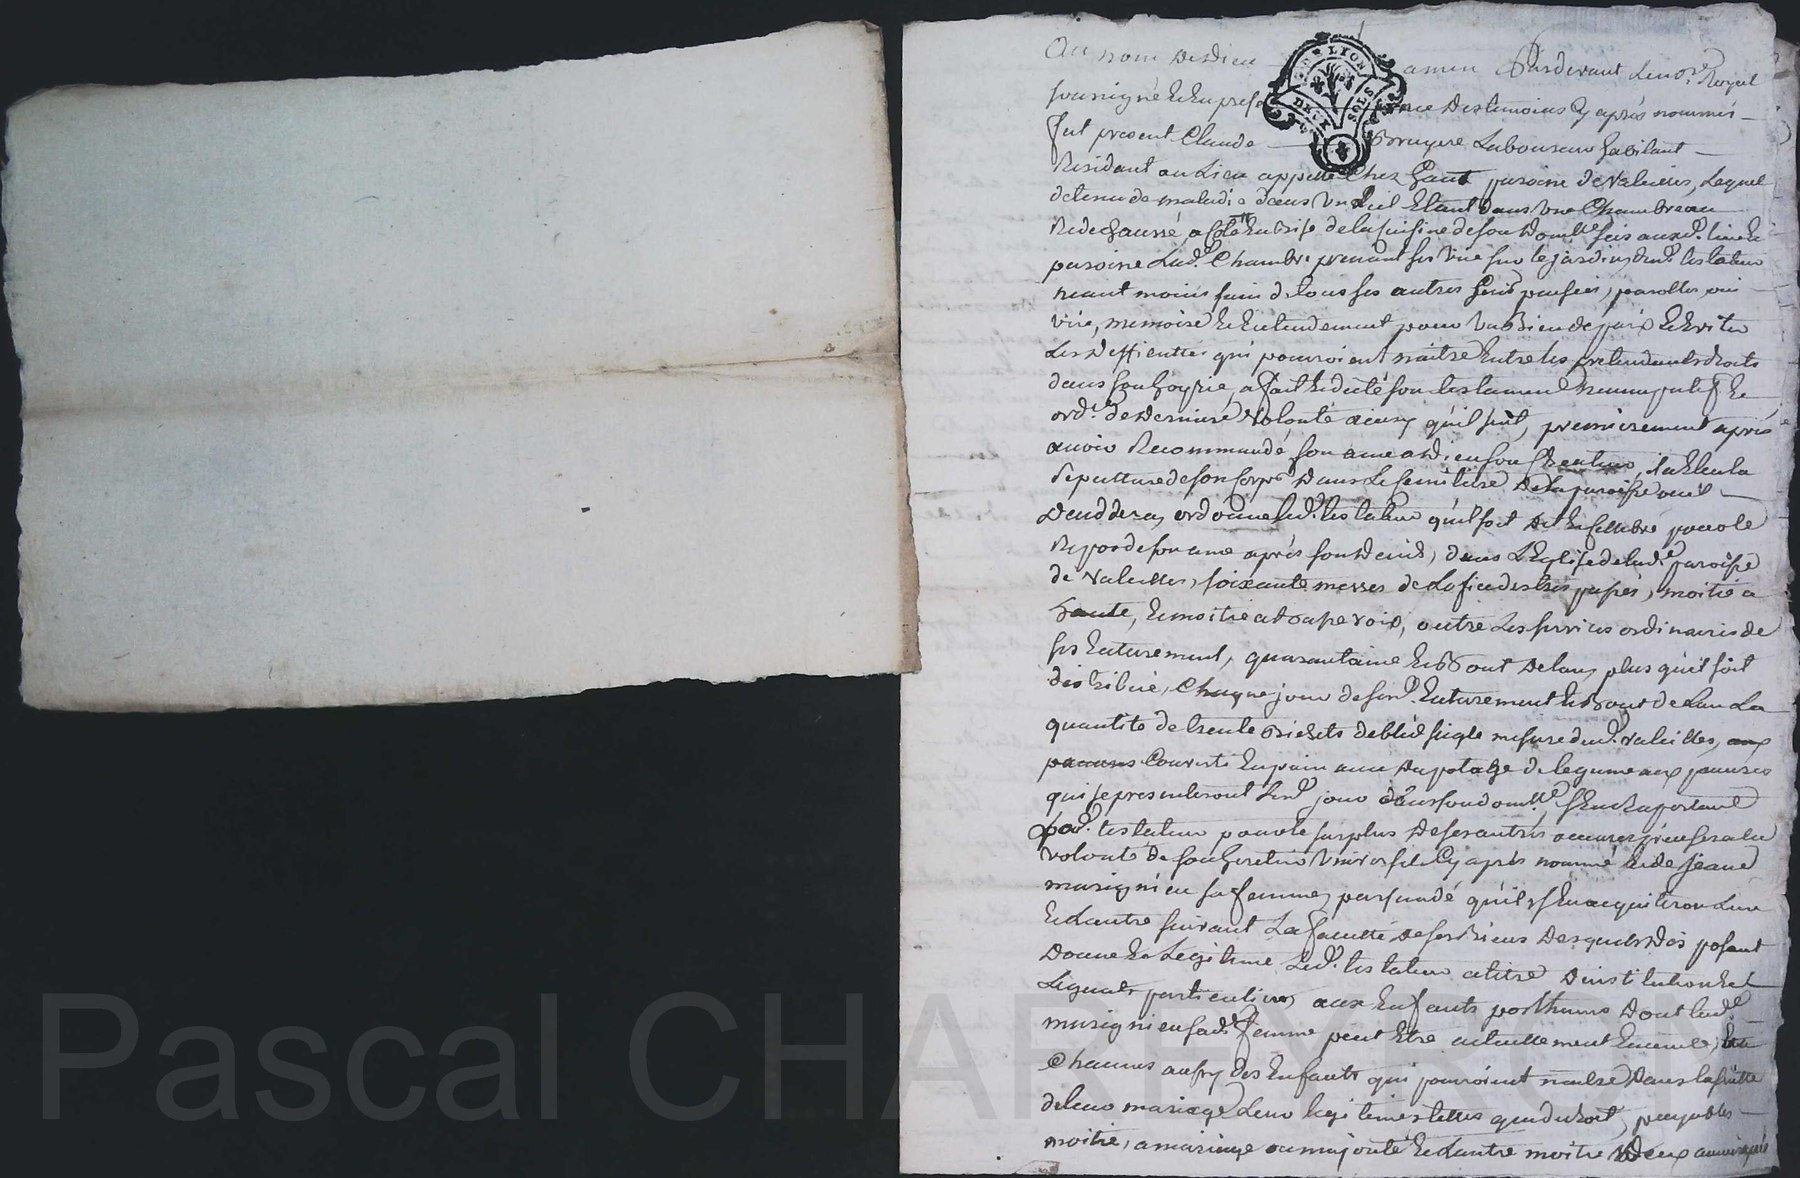 Au nom de Dieu amen Pardevant Le no.re Royal
soussigné et en presence des temoins cy après nommés
fut present Claude Bruyere Laboureur habitant
Residant au Lieu appellé Chez Gaut paroisse de Valeilles, Lequel
detenu de maladie dans un Lit Etant dans une Chambre au
Rede chaussé, a Coté de la Cuisine de son Dom.lle sis auxd. lieu et
paroisse Lad.e Chambre prenant ses vue sur le jardin dud. testateur
neant moins sain de tous ses autres sens pensées, parolles oui
vüe, memoire et Entendement pour un Bien de paix et Eviter
Les Difficultés qui pourroient naitre Entre les pretendants droits
dans son hoyrie, a fait et dicté son testament nuncupatif et
ord.re de Derniere volonté ainsy qu'il suit, premierement après
avoir Recommandé son ame a Dieu son Createur, il a Elu la
sepulture de son Corps Dans Le Cimitiere de la paroisse ou il
Deceddera, ordonne Led. testateur qu'il soit dit et cellebré pour le
Repos de son ame après son Deceds, dans L'Eglise de lad.e paroisse
de Valeilles, soixante messes de Loffice des tres passés, moitié a
haute, et moitié a Basse voix, outre Les services ordinaires de
ses Enterrement, quarantaine et Bout De lan, plus qu'il soit
distribué, Chaque jour de sesd. Enterrement et Bout de Lan La
quantité de trente Bichets de bled seigle mesure dud. Valeilles, aux
pauvres Converti En pain avec du potage de legume aux pauvres
qui se presenteront Lesd. jour dans son dom.lle s'En Raportant
Led. testateur pour le surplus De ses autres œuvres pieuses a la
volonté de son heritier universel Cy après nommé et de Jeanne
Marignien sa femme, persuadé qu'ils s'En acquiteron Lun
et Lautre suivant La faculté de ses Biens Desquels Disposant
Donne et Legitime Led. testateur a titre D'institution et
Legats particuliers aux Enfants posthumes Dont lad.e
marignien sad.e femme peut Etre actuellement Enceinte, et a
Chacuns aussy des Enfants qui pourroient naitre Dans la suitte
de leur mariage Leur legitimes telles que du Droit, payables
moitié, a mariage ou majorité et Lautre moitié Deux années après
Pascal CHAREYRON
D.DE LYON
DEUX SOLS